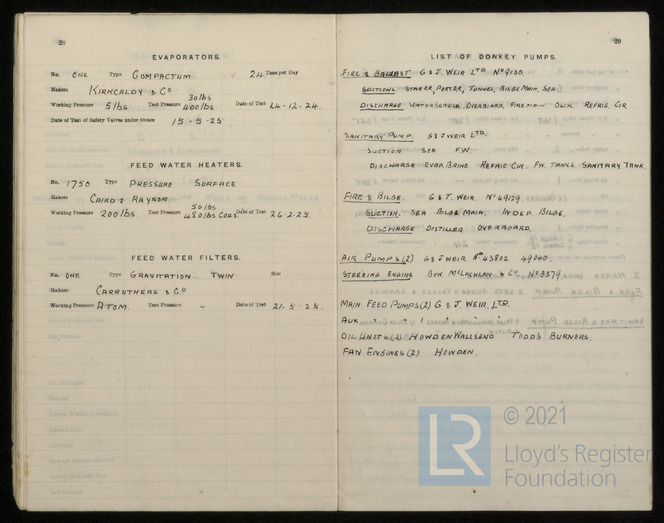 28
EVAPORATORS.
No. ONE Type COMPACTUM 24 Tons per Day
Makers KIRKCALDY & CO
30 lbs
Working Pressure 5 lbs Test Pressure 400 lbs Date of Test 24-12-24.
Date of Test of Safety Valves under Steam 15-5-25
FEED WATER HEATERS.
No. 1750 Type PRESSURE SURFACE
Makers CAIRD & RAYNOR
50 lbs
Working Pressure 200 lbs Test Pressure 450 lbs Date of Test 26-2-25.
FEED WATER FILTERS.
No. ONE Type GRAVITATION TWIN Size
Makers CARRUTHERS & CO
Working Pressure ATOM. Test Pressure - Date of Test 21-5-25.
29
LIST OF DONKEY PUMPS.
FIRE & BALLAST G & J. WEIR LTD No 9130.
SUCTIONS STARBR, PORTER, TUNNEL, BILGE MAIN, SEA.
DISCHARGE WATER SERVICE, OVERBOARD, FIREMAIN DECK. REFRIG. CIR
SANITARY PUMP. G & J WEIR LTD.
SUCTION SEA F.W.
DISCHARGE EVAP. BRINE REFRIG CIR. FW. TANKS. SANITARY TANK
FIRE & BILGE. G & J. WEIR. No 49129
SUCTION. SEA BILGE MAIN. INDEP BILGE.
DISCHARGE DISTILLER OVERBOARD.
AIR PUMPS (2) G & J WEIR No 43802 49040.
STEERING ENGINE BOW MCLACHLAN & CO. No 3579
MAIN FEED PUMPS (2) G & J. WEIR. LTD.
AUX " " 1 " " "
OIL UNITS (2) HOWDEN WALLSEND TODDS BURNERS.
FAN ENGINES (2) HOWDEN.
© 2021
LR
Lloyd's Register
Foundation